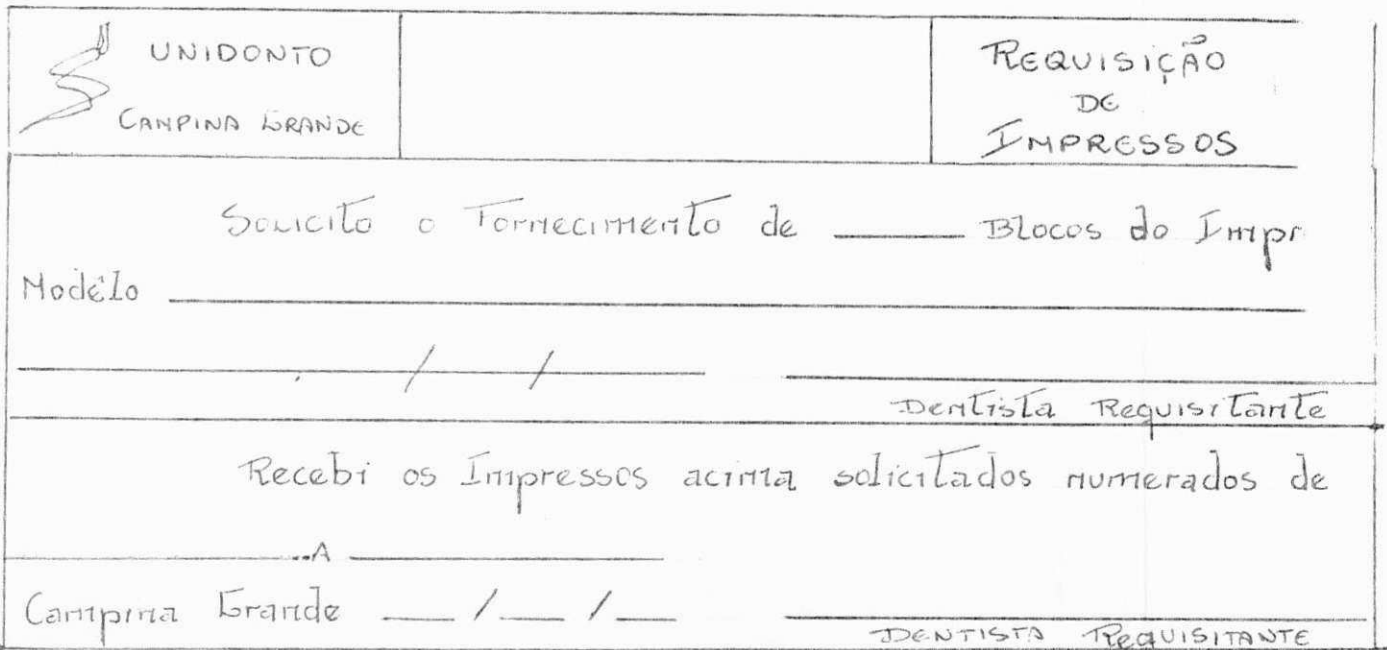 UNIDONTO
CAMPINA GRANDE
REQUISIÇÃO
DE
IMPRESSOS
Solicito o Fornecimento de _____ Blocos do Impr
Modêlo _____
_____ / _____ / _____
Dentista Requisitante
Recebi os Impressos acima solicitados numerados de
_____ A _____
Campina Grande ___ / ___ / ___
DENTISTA REQUISITANTE